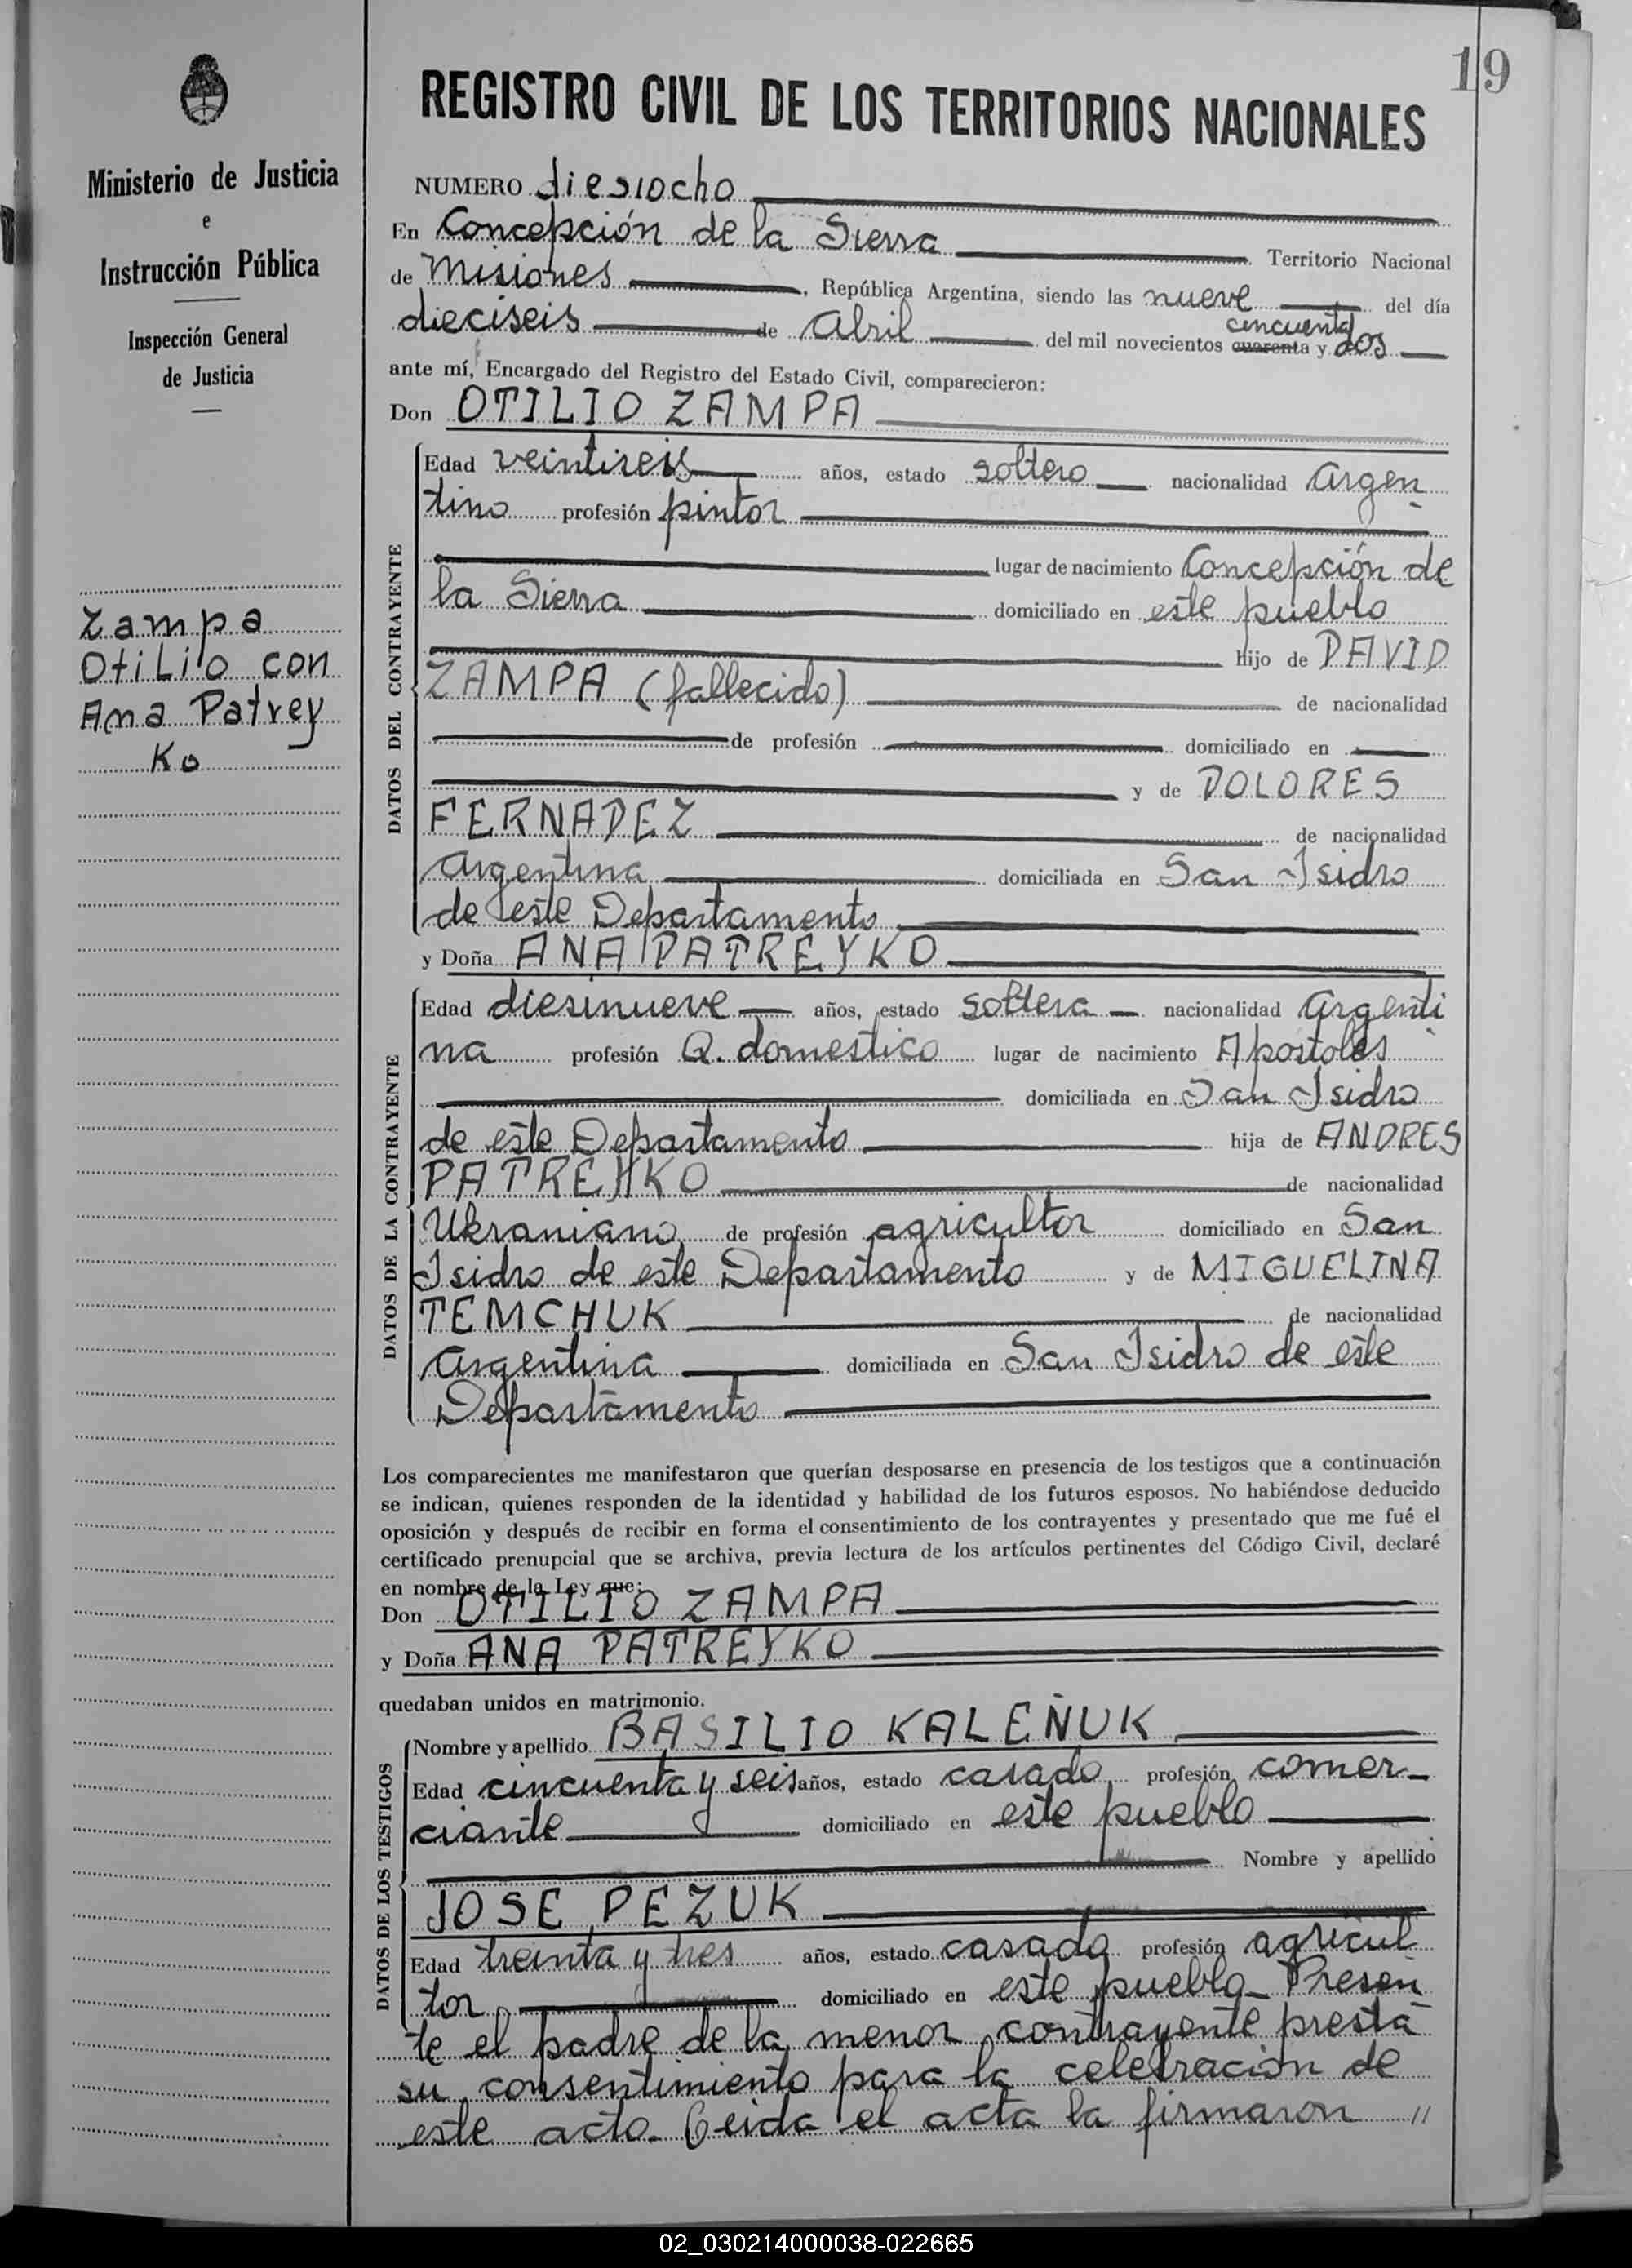 19
REGISTRO CIVIL DE LOS TERRITORIOS NACIONALES
Ministerio de Justicia
e
Instrucción Pública
Inspección General
de Justicia
Zampa
Otilio con
Ana Patrey
Ko
NUMERO diesiocho
En Concepción de la Sierra Territorio Nacional
de Misiones, República Argentina, siendo las nueve del día
dieciseis de Abril del mil novecientos cuarenta cincuenta y dos
ante mí, Encargado del Registro del Estado Civil, comparecieron:
Don OTILIO ZAMPA
DATOS DEL CONTRAYENTE
Edad veintiseis años, estado soltero nacionalidad Argen
tino profesión pintor
lugar de nacimiento Concepción de
la Sierra domiciliado en este pueblo
Hijo de DAVID
ZAMPA (fallecido) de nacionalidad
de profesión domiciliado en
y de DOLORES
FERNADEZ de nacionalidad
Argentina domiciliada en San Isidro
de este Departamento
y Doña ANA PATREYKO
DATOS DE LA CONTRAYENTE
Edad diesinueve años, estado soltera nacionalidad Argenti
na profesión Q. domestico lugar de nacimiento Apostoles
domiciliada en San Isidro
de este Departamento hija de ANDRES
PATREYKO de nacionalidad
Ukraniano de profesión agricultor domiciliado en San
Isidro de este Departamento y de MIGUELINA
TEMCHUK de nacionalidad
Argentina domiciliada en San Isidro de este
Departamento
Los comparecientes me manifestaron que querían desposarse en presencia de los testigos que a continuación
se indican, quienes responden de la identidad y habilidad de los futuros esposos. No habiéndose deducido
oposición y después de recibir en forma el consentimiento de los contrayentes y presentado que me fué el
certificado prenupcial que se archiva, previa lectura de los artículos pertinentes del Código Civil, declaré
en nombre de la Ley que:
Don OTILIO ZAMPA
y Doña ANA PATREYKO
quedaban unidos en matrimonio.
DATOS DE LOS TESTIGOS
Nombre y apellido BASILIO KALEÑUK
Edad cincuenta y seis años, estado casado profesión comer-
ciante domiciliado en este pueblo
Nombre y apellido
JOSE PEZUK
Edad treinta y tres años, estado casado profesión agricul
tor domiciliado en este pueblo - Presen
te el padre de la menor contrayente presta
su consentimiento para la celebración de
este acto. Leida el acta la firmaron //
02_030214000038-022665